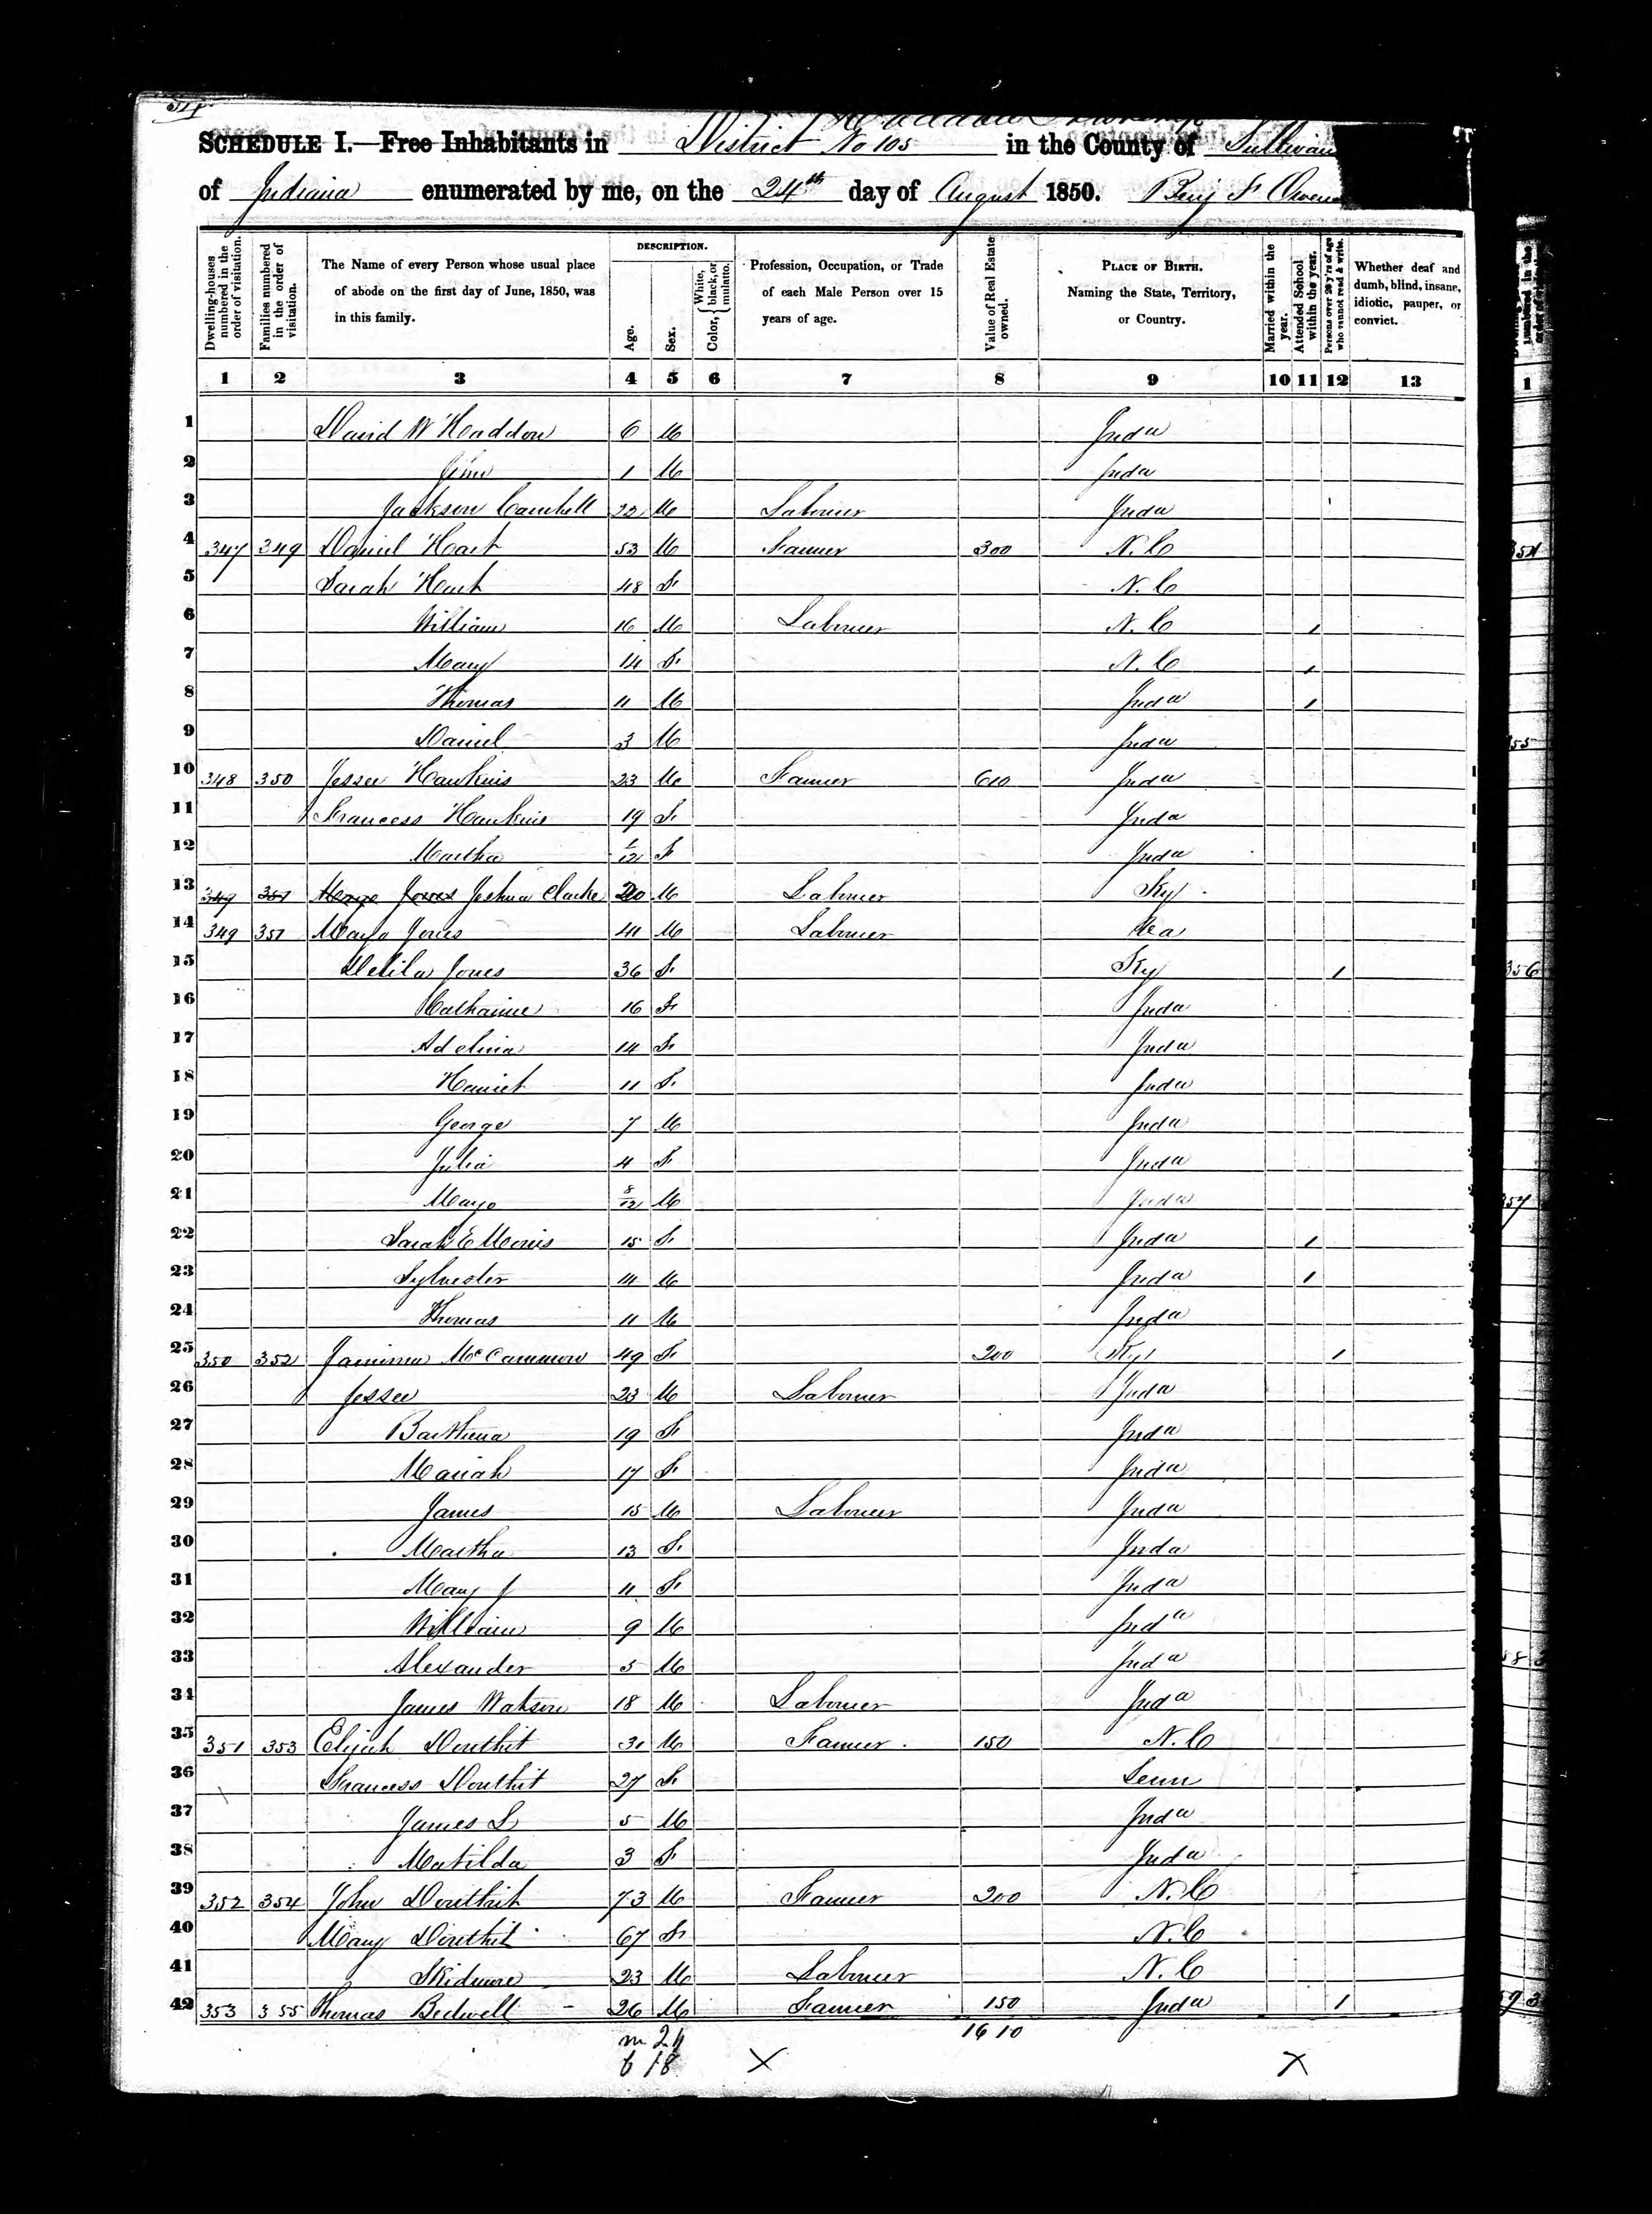 Haddon Township
SCHEDULE I.—Free Inhabitants in District No 105 in the County of Sullivan
of Indiana enumerated by me, on the 24th day of August 1850. Benj F Owens
Dwelling-houses numbered in the order of visitation.
Families numbered in the order of visitation.
The Name of every Person whose usual place of abode on the first day of June, 1850, was in this family.
DESCRIPTION.
Age.
Sex.
Color, { White, black, or mulatto.
Profession, Occupation, or Trade of each Male Person over 15 years of age.
Value of Real Estate owned.
PLACE OF BIRTH. Naming the State, Territory, or Country.
Married within the year.
Attended School within the year.
Persons over 20 y'rs of age who cannot read & write.
Whether deaf and dumb, blind, insane, idiotic, pauper, or convict.
1 2 3 4 5 6 7 8 9 10 11 12 13
1 David W Haddon 6 M Inda
2 1 M Inda
3 Jackson Camhell 22 M Labourer Inda
4 347 349 Daniel Hart 53 M Farmer 300 N. C
5 Sarah Hart 48 F N. C
6 William 16 M Labourer N. C 1
7 Mary 14 F N. C 1
8 Thomas 11 M Inda 1
9 Daniel 3 M Inda
10 348 350 Jesse Hawkins 23 M Farmer 600 Inda
11 Francess Hawkins 19 F Inda
12 Martha /12 F Inda
13 349 351 Mayo Jones Joshua Clarke 20 M Labourer Ky
14 349 351 Mayo Jones 41 M Labourer Va
15 Delila Jones 36 F Ky 1
16 Catharine 16 F Inda
17 Adelina 14 F Inda
18 Harriet 11 F Inda
19 George 7 M Inda
20 Julia 4 F Inda
21 Mayo 8/12 M Inda
22 Sarah E Morris 15 F Inda 1
23 Sylvester 14 M Inda 1
24 Thomas 11 M Inda
25 350 352 Jamima McCammon 49 F 200 Ky 1
26 Jesse 23 M Labourer Inda
27 Barthena 19 F Inda
28 Mariah 17 F Inda
29 James 15 M Labourer Inda
30 Martha 13 F Inda
31 Mary J 11 F Inda
32 William 9 M Inda
33 Alexander 5 M Inda
34 James Watson 18 M Labourer Inda
35 351 353 Elijah Douthit 31 M Farmer 150 N. C
36 Francess Douthit 27 F Tenn
37 James L 5 M Inda
38 Matilda 3 F Inda
39 352 354 John Douthit 73 M Farmer 200 N. C
40 Mary Douthit 67 F N. C
41 Skidmore 23 M Labourer N. C
42 353 355 Thomas Bedwell 26 M Farmer 150 Inda 1
m 24 1610
f 18 X X